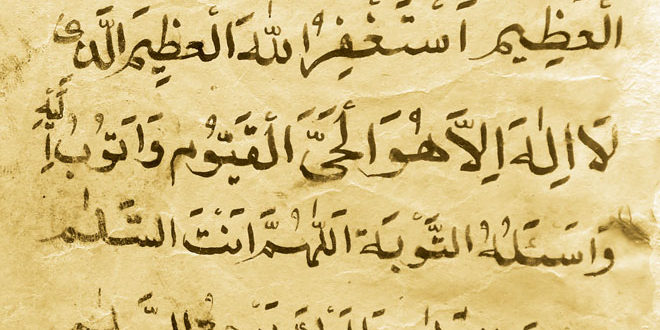 الْعَظِيمِ اَسْتَغْفِرُ اللّٰهَ الْعَظِيمَ الَّذٖى
لَا اِلٰهَ اِلَّا هُوَ الْحَىَّ الْقَيُّومَ وَاَتُوبُ اِلَيْهِ
وَاَسْئَلُهُ التَّوْبَةَ اَللّٰهُمَّ اَنْتَ السَّلَامُ